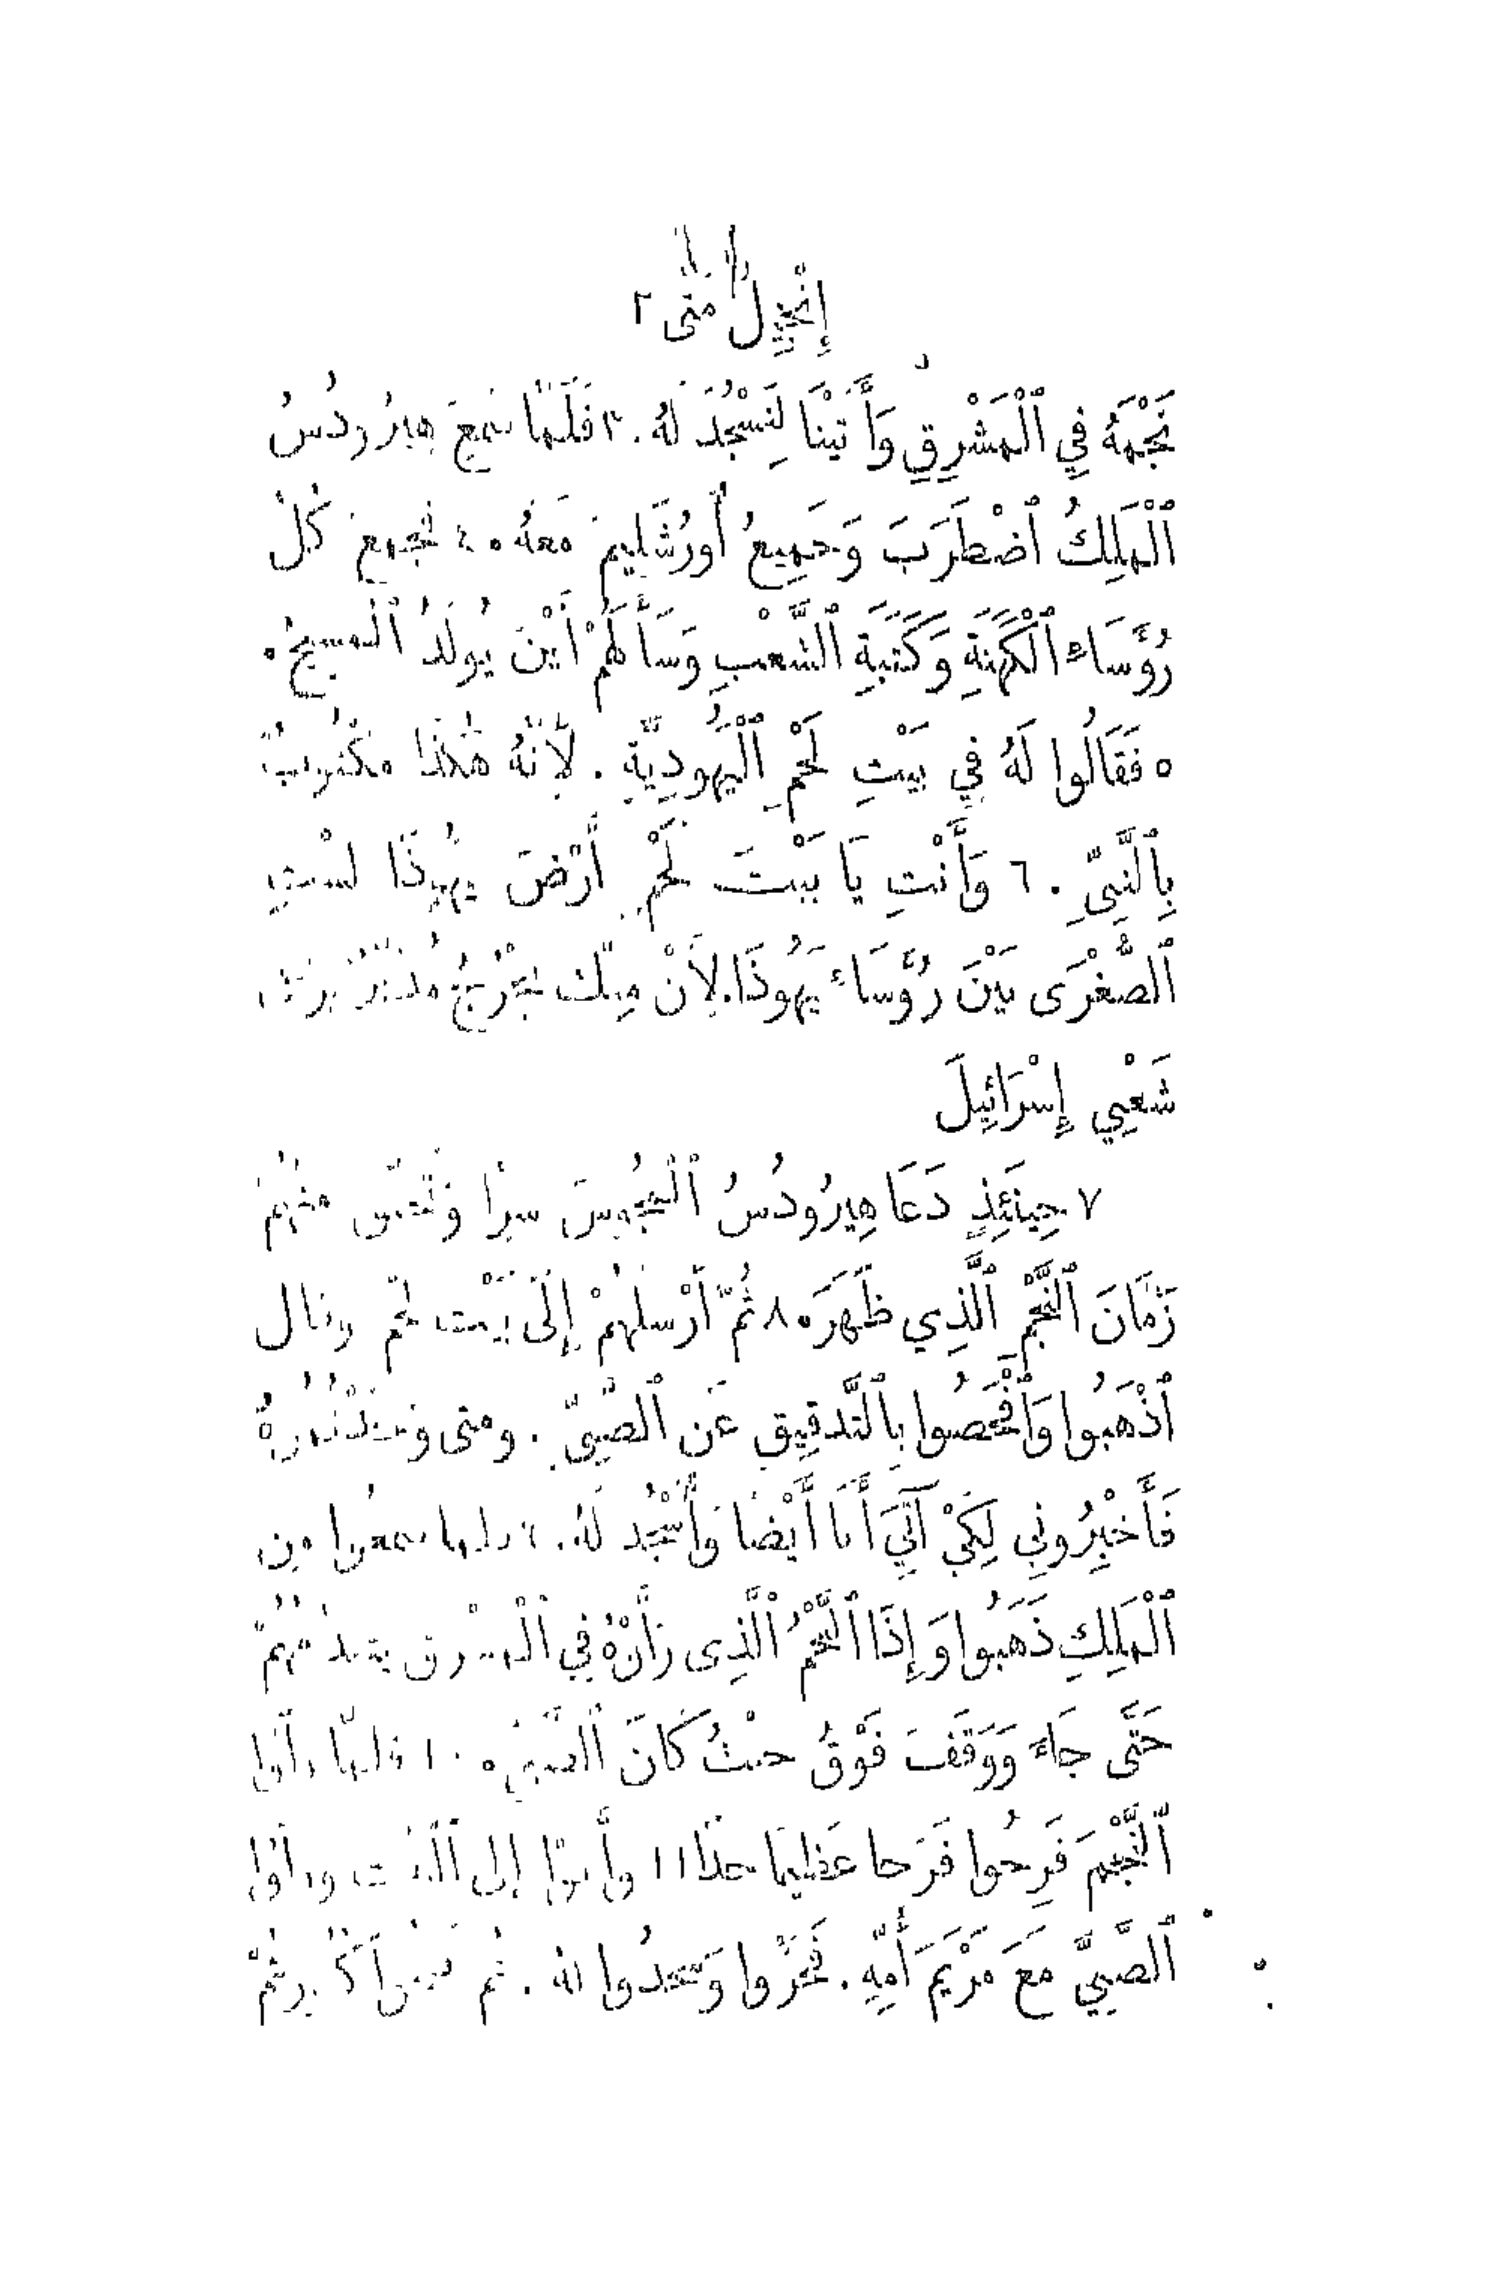 إِنْجِيلُ مَتَّى ٢
نَجْمَهُ فِي ٱلْمَشْرِقِ وَأَتَيْنَا لِنَسْجُدَ لَهُ. ٣ فَلَمَّا سَمِعَ هِيرُودُسُ
ٱلْمَلِكُ ٱضْطَرَبَ وَجَمِيعُ أُورُشَلِيمَ مَعَهُ. ٤ فَجَمَعَ كُلَّ
رُؤَسَاءِ ٱلْكَهَنَةِ وَكَتَبَةِ ٱلشَّعْبِ وَسَأَلَهُمْ أَيْنَ يُولَدُ ٱلْمَسِيحُ.
٥ فَقَالُوا لَهُ فِي بَيْتِ لَحْمِ ٱلْيَهُودِيَّةِ. لِأَنَّهُ هٰكَذَا مَكْتُوبٌ
بِٱلنَّبِيِّ. ٦ وَأَنْتِ يَا بَيْتَ لَحْمٍ أَرْضَ يَهُوذَا لَسْتِ
ٱلصُّغْرَى بَيْنَ رُؤَسَاءِ يَهُوذَا. لِأَنْ مِنْكِ يَخْرُجُ مُدَبِّرٌ يَرْعَى
شَعْبِي إِسْرَائِيلَ
٧ حِينَئِذٍ دَعَا هِيرُودُسُ ٱلْمَجُوسَ سِرًّا وَتَحَقَّقَ مِنْهُمْ
زَمَانَ ٱلنَّجْمِ ٱلَّذِي ظَهَرَ. ٨ ثُمَّ أَرْسَلَهُمْ إِلَى بَيْتِ لَحْمٍ وَقَالَ
ٱذْهَبُوا وَٱفْحَصُوا بِٱلتَّدْقِيقِ عَنِ ٱلصَّبِيِّ. وَمَتَى وَجَدْتُمُوهُ
فَأَخْبِرُونِي لِكَيْ آتِيَ أَنَا أَيْضًا وَأَسْجُدَ لَهُ. ٩ فَلَمَّا سَمِعُوا مِنَ
ٱلْمَلِكِ ذَهَبُوا وَإِذَا ٱلنَّجْمُ ٱلَّذِي رَأَوْهُ فِي ٱلْمَشْرِقِ يَتَقَدَّمُهُمْ
حَتَّى جَاءَ وَوَقَفَ فَوْقُ حَيْثُ كَانَ ٱلصَّبِيُّ. ١٠ فَلَمَّا رَأَوُا
ٱلنَّجْمَ فَرِحُوا فَرَحًا عَظِيمًا جِدًّا ١١ وَأَتَوْا إِلَى ٱلْبَيْتِ وَرَأَوُا
ٱلصَّبِيَّ مَعَ مَرْيَمَ أُمِّهِ. فَخَرُّوا وَسَجَدُوا لَهُ. ثُمَّ فَتَحُوا كُنُوزَهُمْ